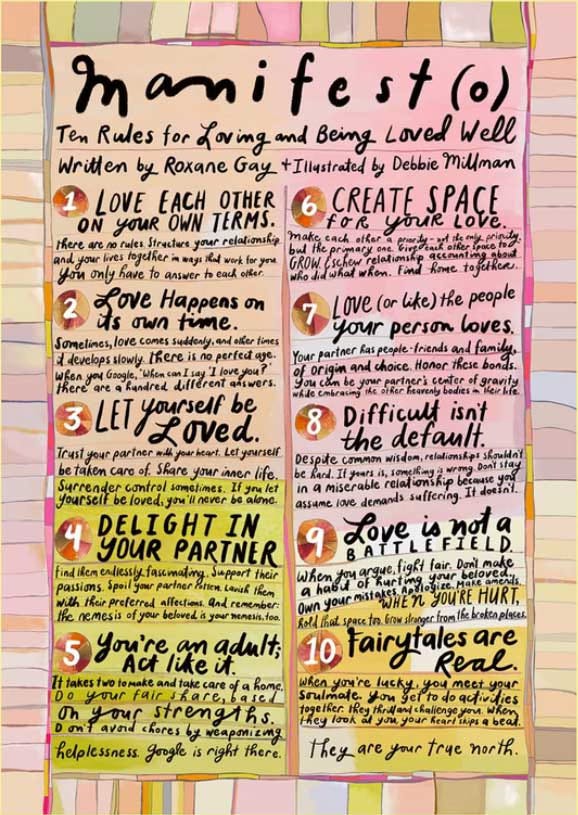 Manifest(o)
Ten Rules for Loving and Being Loved Well
Written by Roxane Gay + Illustrated by Debbie Millman
1 LOVE EACH OTHER
ON YOUR OWN TERMS.
There are no rules. Structure your relationship
and your lives together in ways that work for you.
You only have to answer to each other.
2 Love Happens on
its own time.
Sometimes, love comes suddenly, and other times
it develops slowly. There is no perfect age.
When you Google, "When can I say I love you?"
there are a hundred different answers.
3 LET yourself be
Loved.
Trust your partner with your heart. Let yourself
be taken care of. Share your inner life.
Surrender control sometimes. If you let
yourself be loved, you'll never be alone.
4 DELIGHT IN
YOUR PARTNER
Find them endlessly fascinating. Support their
passions. Spoil your partner rotten. Lavish them
with their preferred affections. And remember:
the nemesis of your beloved is your nemesis, too.
5 You're an adult;
Act like it.
It takes two to make and take care of a home.
Do your fair share, based
on your strengths.
Don't avoid chores by weaponizing
helplessness. Google is right there.
6 CREATE SPACE
FOR YOUR LOVE.
Make each other a priority - not the only priority,
but the primary one. Give each other space to
GROW. Eschew relationship accounting about
who did what when. Find home together.
7 LOVE (or like) the people
your person loves.
Your partner has people - friends and family,
of origin and choice. Honor these bonds.
You can be your partner's center of gravity
while embracing the other heavenly bodies in their life.
8 Difficult isn't
the default.
Despite common wisdom, relationships shouldn't
be hard. If yours is, something is wrong. Don't stay
in a miserable relationship because you
assume love demands suffering. It doesn't.
9 Love is not a
BATTLEFIELD.
When you argue, fight fair. Don't make
a habit of hurting your beloved.
Own your mistakes. Apologize. Make amends.
WHEN YOU'RE HURT,
hold that space too. Grow stronger from the broken places.
10 Fairytales are
Real.
When you're lucky, you meet your
Soulmate. You get to do activities
together. They thrill and challenge you. When
they look at you, your heart skips a beat.
They are your true north.